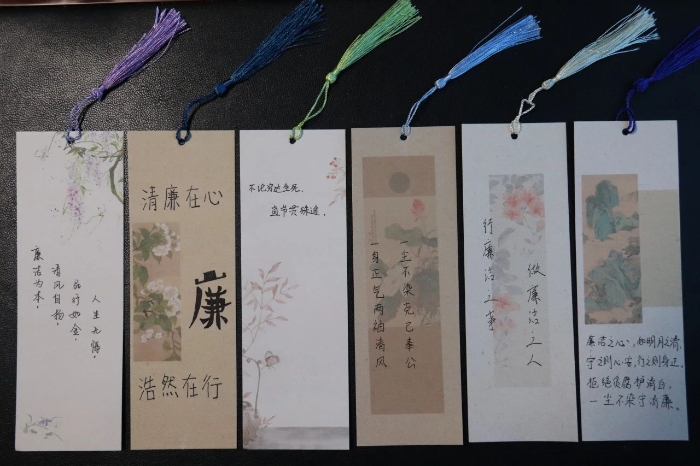 廉洁为本，
清风自扬，
品行如金，
人生无悔。
清廉在心
廉
浩然在行
不论穷达生死，
直节贯殊途。
一尘不染克己奉公
一身正气两袖清风
做廉洁之人
行廉洁之事
廉洁之心，如明月之清，
守之则心安，行之则身正，
拒绝贪腐护清
一尘不染守清廉。